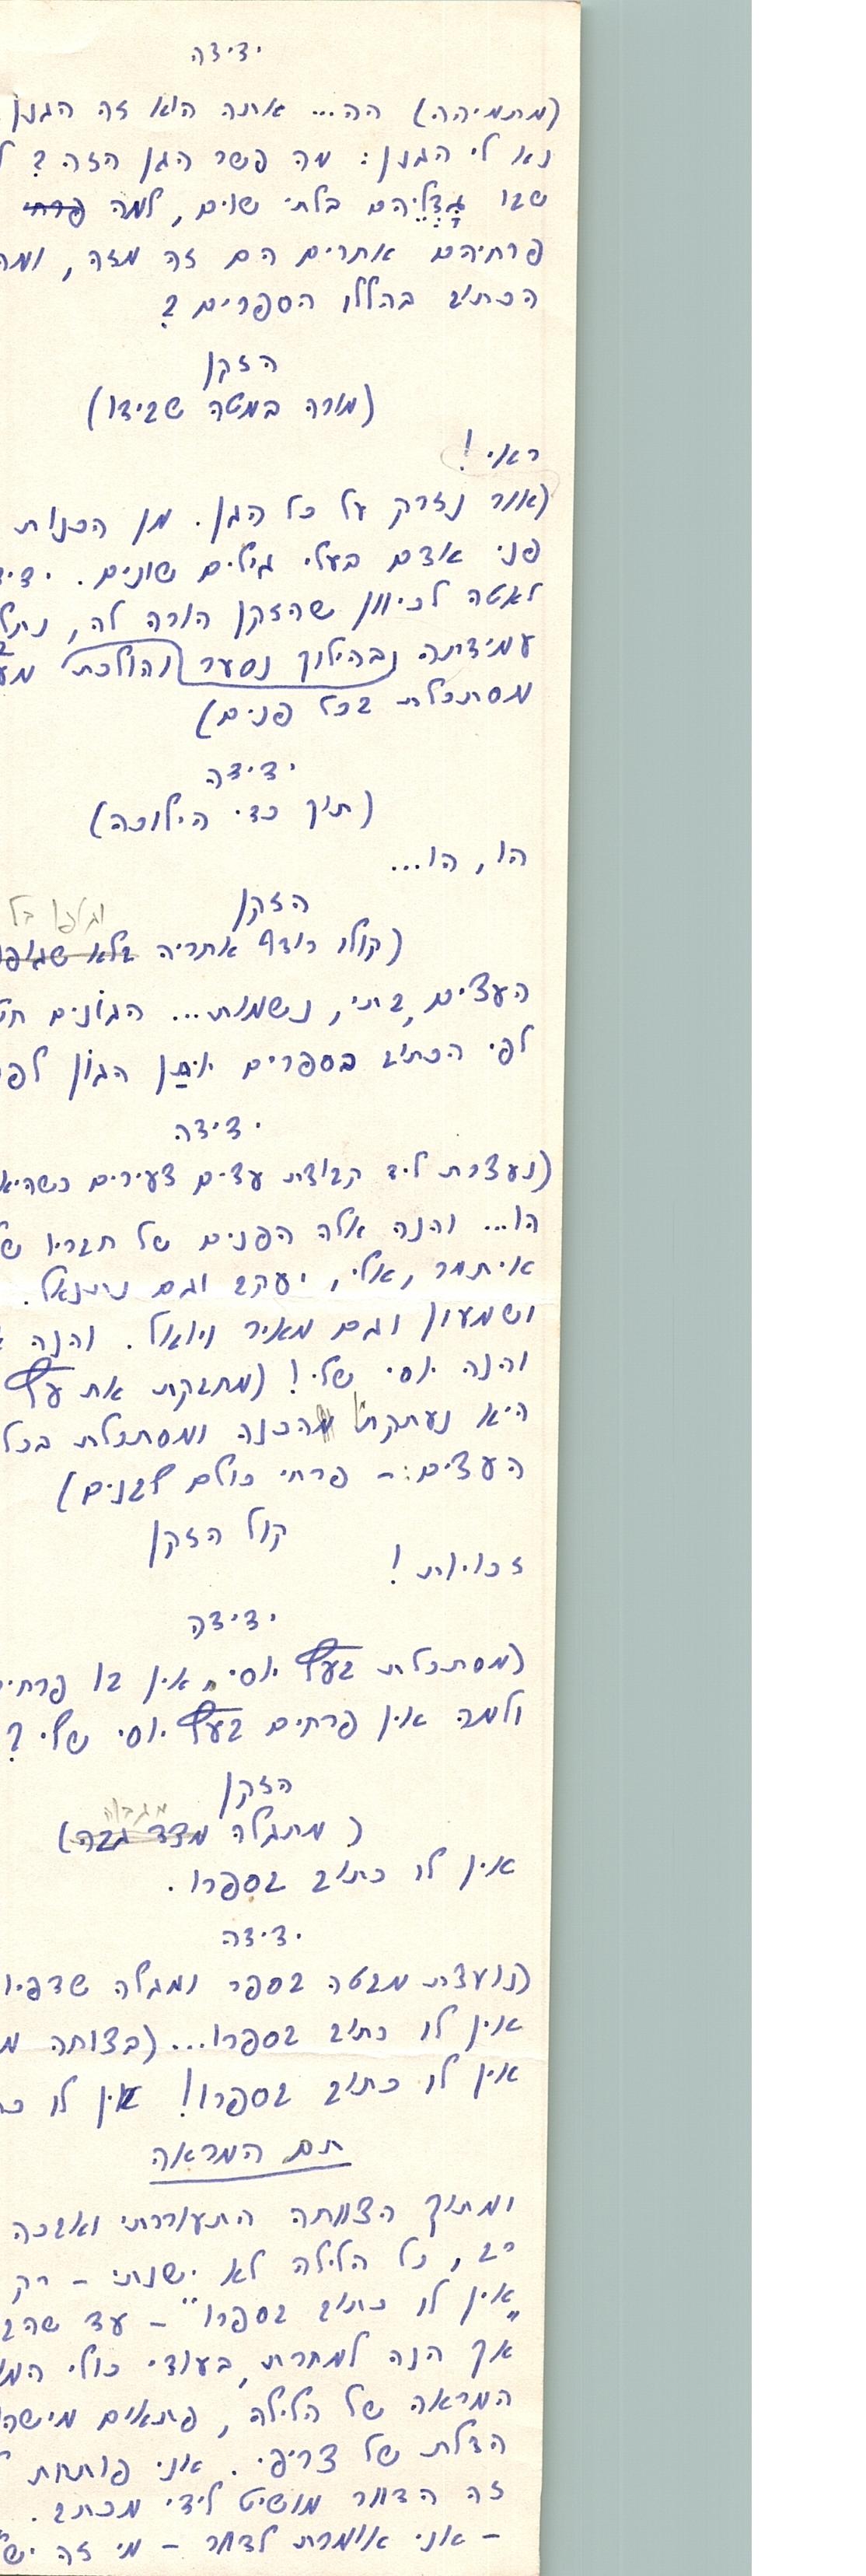 ידידה
(מתמיהה) הה... אתה הוא זה הגנן
נא לי הגנן: מה פשר הגן הזה? ל
שבו גָדְלֵיהם בלתי שוים, למה פרחי
פרחיהם אחרים הם זה מזה, ומה
הכתוב בהללו הספרים?
הזקן
(מורה במטה שבידו)
ראי!
(אור נזרק על כל הגן. מן הכנות
פני אדם בעלי גילים שונים. ידיד
לאטה לכיוון שהזקן הורה לה, נתל
עמידתה ובהילוך נסער והולכת מע
מסתכלת בכל פנים)
ידידה
(תוך כדי הילוכה)
הו, הו...
הזקן
(קולו רודף אחריה בלא שגופו
העצים, בתי, נשמות... הגוֹנים
לפי הכתוב בספרים יותַן הגוֹן לפר
ידידה
(נעצרת ליד קבוצת עצים צעירים כשהיא
הו... והנה אלה הפנים של חבריו של
איתמר, אלי, יעקב וגם נתנאל.
ושמעון וגם מאיר ויואל. והנה
והנה יוסי שלי! (מחבקת את עץ
היא נעתקת מהכנה ומסתכלת בכל
העצים: – פרחי כולם לבנים)
קול הזקן
זכויות!
ידידה
(מסתכלת בעץ יוסי אין בו פרחים
ולמה אין פרחים בעץ יוסי שלי?
הזקן
מגבוה
(מתגלה מצד גבה)
אין לו כתוב בספרו.
ידידה
(נועצת מבטה בספר ומגלה שדפיו
אין לו כתוב בספרו... (בצוחה מ
אין לו כתוב בספרו! אין לו כת
תם המראה
ומתוך הצווחה התעוררתי ואבכה
רב, כל הלילה לא ישנתי – רק
"אין לו כתוב בספרו" – עד שהב
אך הנה למחרת, בעודי כולי המו
המראה של הלילה, פתאום מישהו
הדלת של צריפי. אני פותחת
זה הדוור מושיט לידי מכתב.
– אני אומרת לדוור – מי זה יש